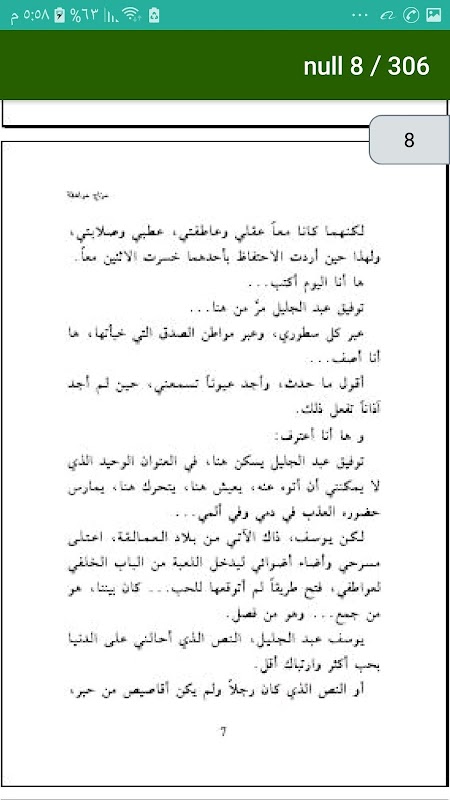 ٥:٥٨ م
٦٣%
null 8 / 306
8
مزاج مراهقة
لكنهما كانا معاً عقلي وعاطفتي، عطبي وصلابتي،
ولهذا حين أردت الاحتفاظ بأحدهما خسرت الاثنين معاً.
ها أنا اليوم أكتب...
توفيق عبد الجليل مرَّ من هنا...
عبر كل سطوري، وعبر مواطن الصدق التي خبأتها، ها
أنا أصف...
أقول ما حدث، وأجد عيوناً تسمعني، حين لم أجد
آذاناً تفعل ذلك.
و ها أنا أعترف:
توفيق عبد الجليل يسكن هنا، في العنوان الوحيد الذي
لا يمكنني أن أتوه عنه، يعيش هنا، يتحرك هنا، يمارس
حضوره العذب في دمي وفي ألمي...
لكن يوسف، ذاك الآتي من بلاد العمالقة، اعتلى
مسرحي وأضاء أضوائي ليدخل اللعبة من الباب الخلفي
لعواطفي، فتح طريقاً لم أتوقعها للحب... كان بيننا، هو
من جمع... وهو من فصل.
يوسف عبد الجليل، النص الذي أحالني على الدنيا
بحب أكثر وارتباك أقل.
أو النص الذي كان رجلاً ولم يكن أقاصيص من حبر،
7